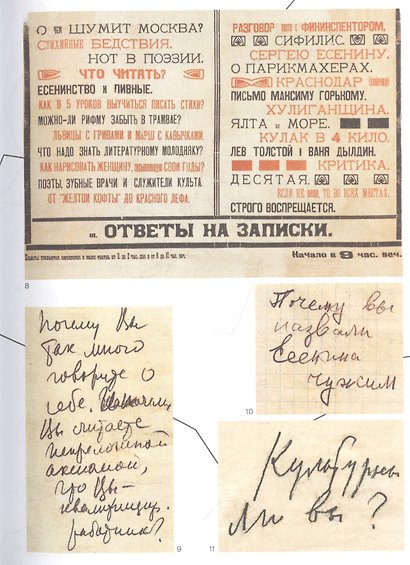 О чем ШУМИТ МОСКВА?
СТИХИЙНЫЕ БЕДСТВИЯ.
НОТ В ПОЭЗИИ.
ЧТО ЧИТАТЬ?
ЕСЕНИНСТВО И ПИВНЫЕ.
КАК В 5 УРОКОВ ВЫУЧИТЬСЯ ПИСАТЬ СТИХИ?
МОЖНО-ЛИ РИФМУ ЗАБЫТЬ В ТРАМВАЕ?
ЛЬВИЦЫ С ГРИВАМИ И МАРШ С КАВЫЧКАМИ.
ЧТО НАДО ЗНАТЬ ЛИТЕРАТУРНОМУ МОЛОДНЯКУ?
КАК НАРИСОВАТЬ ЖЕНЩИНУ, скрывающую СВОИ ГОДЫ?
ПОЭТЫ, ЗУБНЫЕ ВРАЧИ И СЛУЖИТЕЛИ КУЛЬТА.
ОТ "ЖЕЛТОЙ КОФТЫ" ДО КРАСНОГО ЛЕФА.
РАЗГОВОР С ФИНИНСПЕКТОРОМ.
СИФИЛИС.
СЕРГЕЮ ЕСЕНИНУ.
О ПАРИКМАХЕРАХ.
КРАСНОДАР
ПИСЬМО МАКСИМУ ГОРЬКОМУ.
ХУЛИГАНЩИНА.
ЯЛТА и МОРЕ.
КУЛАК В 4 КИЛО.
ЛЕВ ТОЛСТОЙ и ВАНЯ ДЫЛДИН.
КРИТИКА.
ДЕСЯТАЯ,
ЕСЛИ НЕ ВШИ, ТО ВО ВСЕХ МЕСТАХ.
СТРОГО ВОСПРЕЩАЕТСЯ.
III. ОТВЕТЫ НА ЗАПИСКИ.
Начало в 9 час. веч.
8
Почему Вы
так много
говорите о
себе.
Вы считаете
непреложной
аксиомой,
что Вы –
квалифицир.
работник?
9
Почему вы
назвали
Есенина
чужим
10
Культурны
ли вы?
11